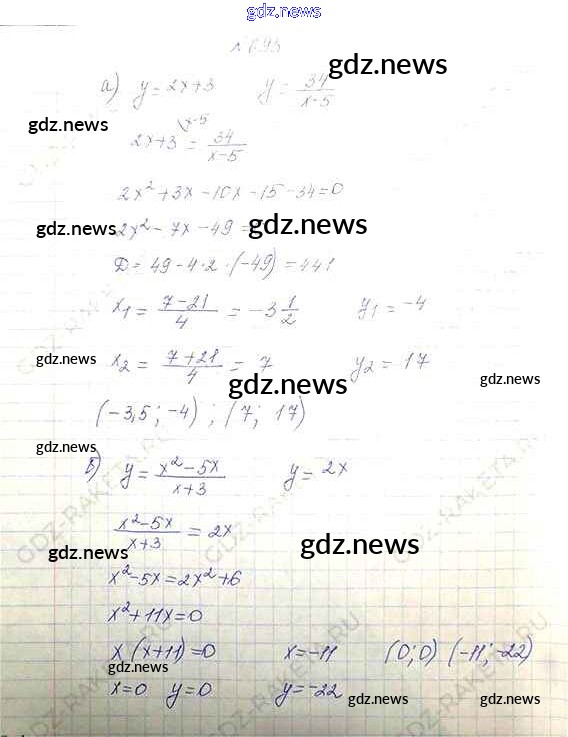 gdz.news
№ 695
gdz.news
а) y = 2x+3 y = 34/(x-5)
gdz.news
2x+3 \x-5 = 34/(x-5)
2x²+3x-10x-15-34=0
gdz.news 2x²-7x-49= gdz.news
D = 49-4·2·(-49) = 441
x₁ = (7-21)/4 = -3 1/2 y₁ = -4
gdz.news x₂ = (7+21)/4 = 7 y₂ = 17 gdz.news
gdz.news
(-3,5; -4); (7; 17)
gdz.news
б) y = (x²-5x)/(x+3) y = 2x
(x²-5x)/(x+3) = 2x
gdz.news gdz.news
x²-5x=2x²+6
x²+11x=0
x(x+11)=0 x=-11 (0;0) (-11;-22)
gdz.news
x=0 y=0 y=-22
gdz.news gdz.news
GDZ-RAKETA.RU
GDZ-RAKETA.RU
GDZ-RAKETA.RU